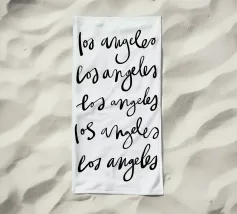 los angeles
los angeles
los angeles
los angeles
los angeles